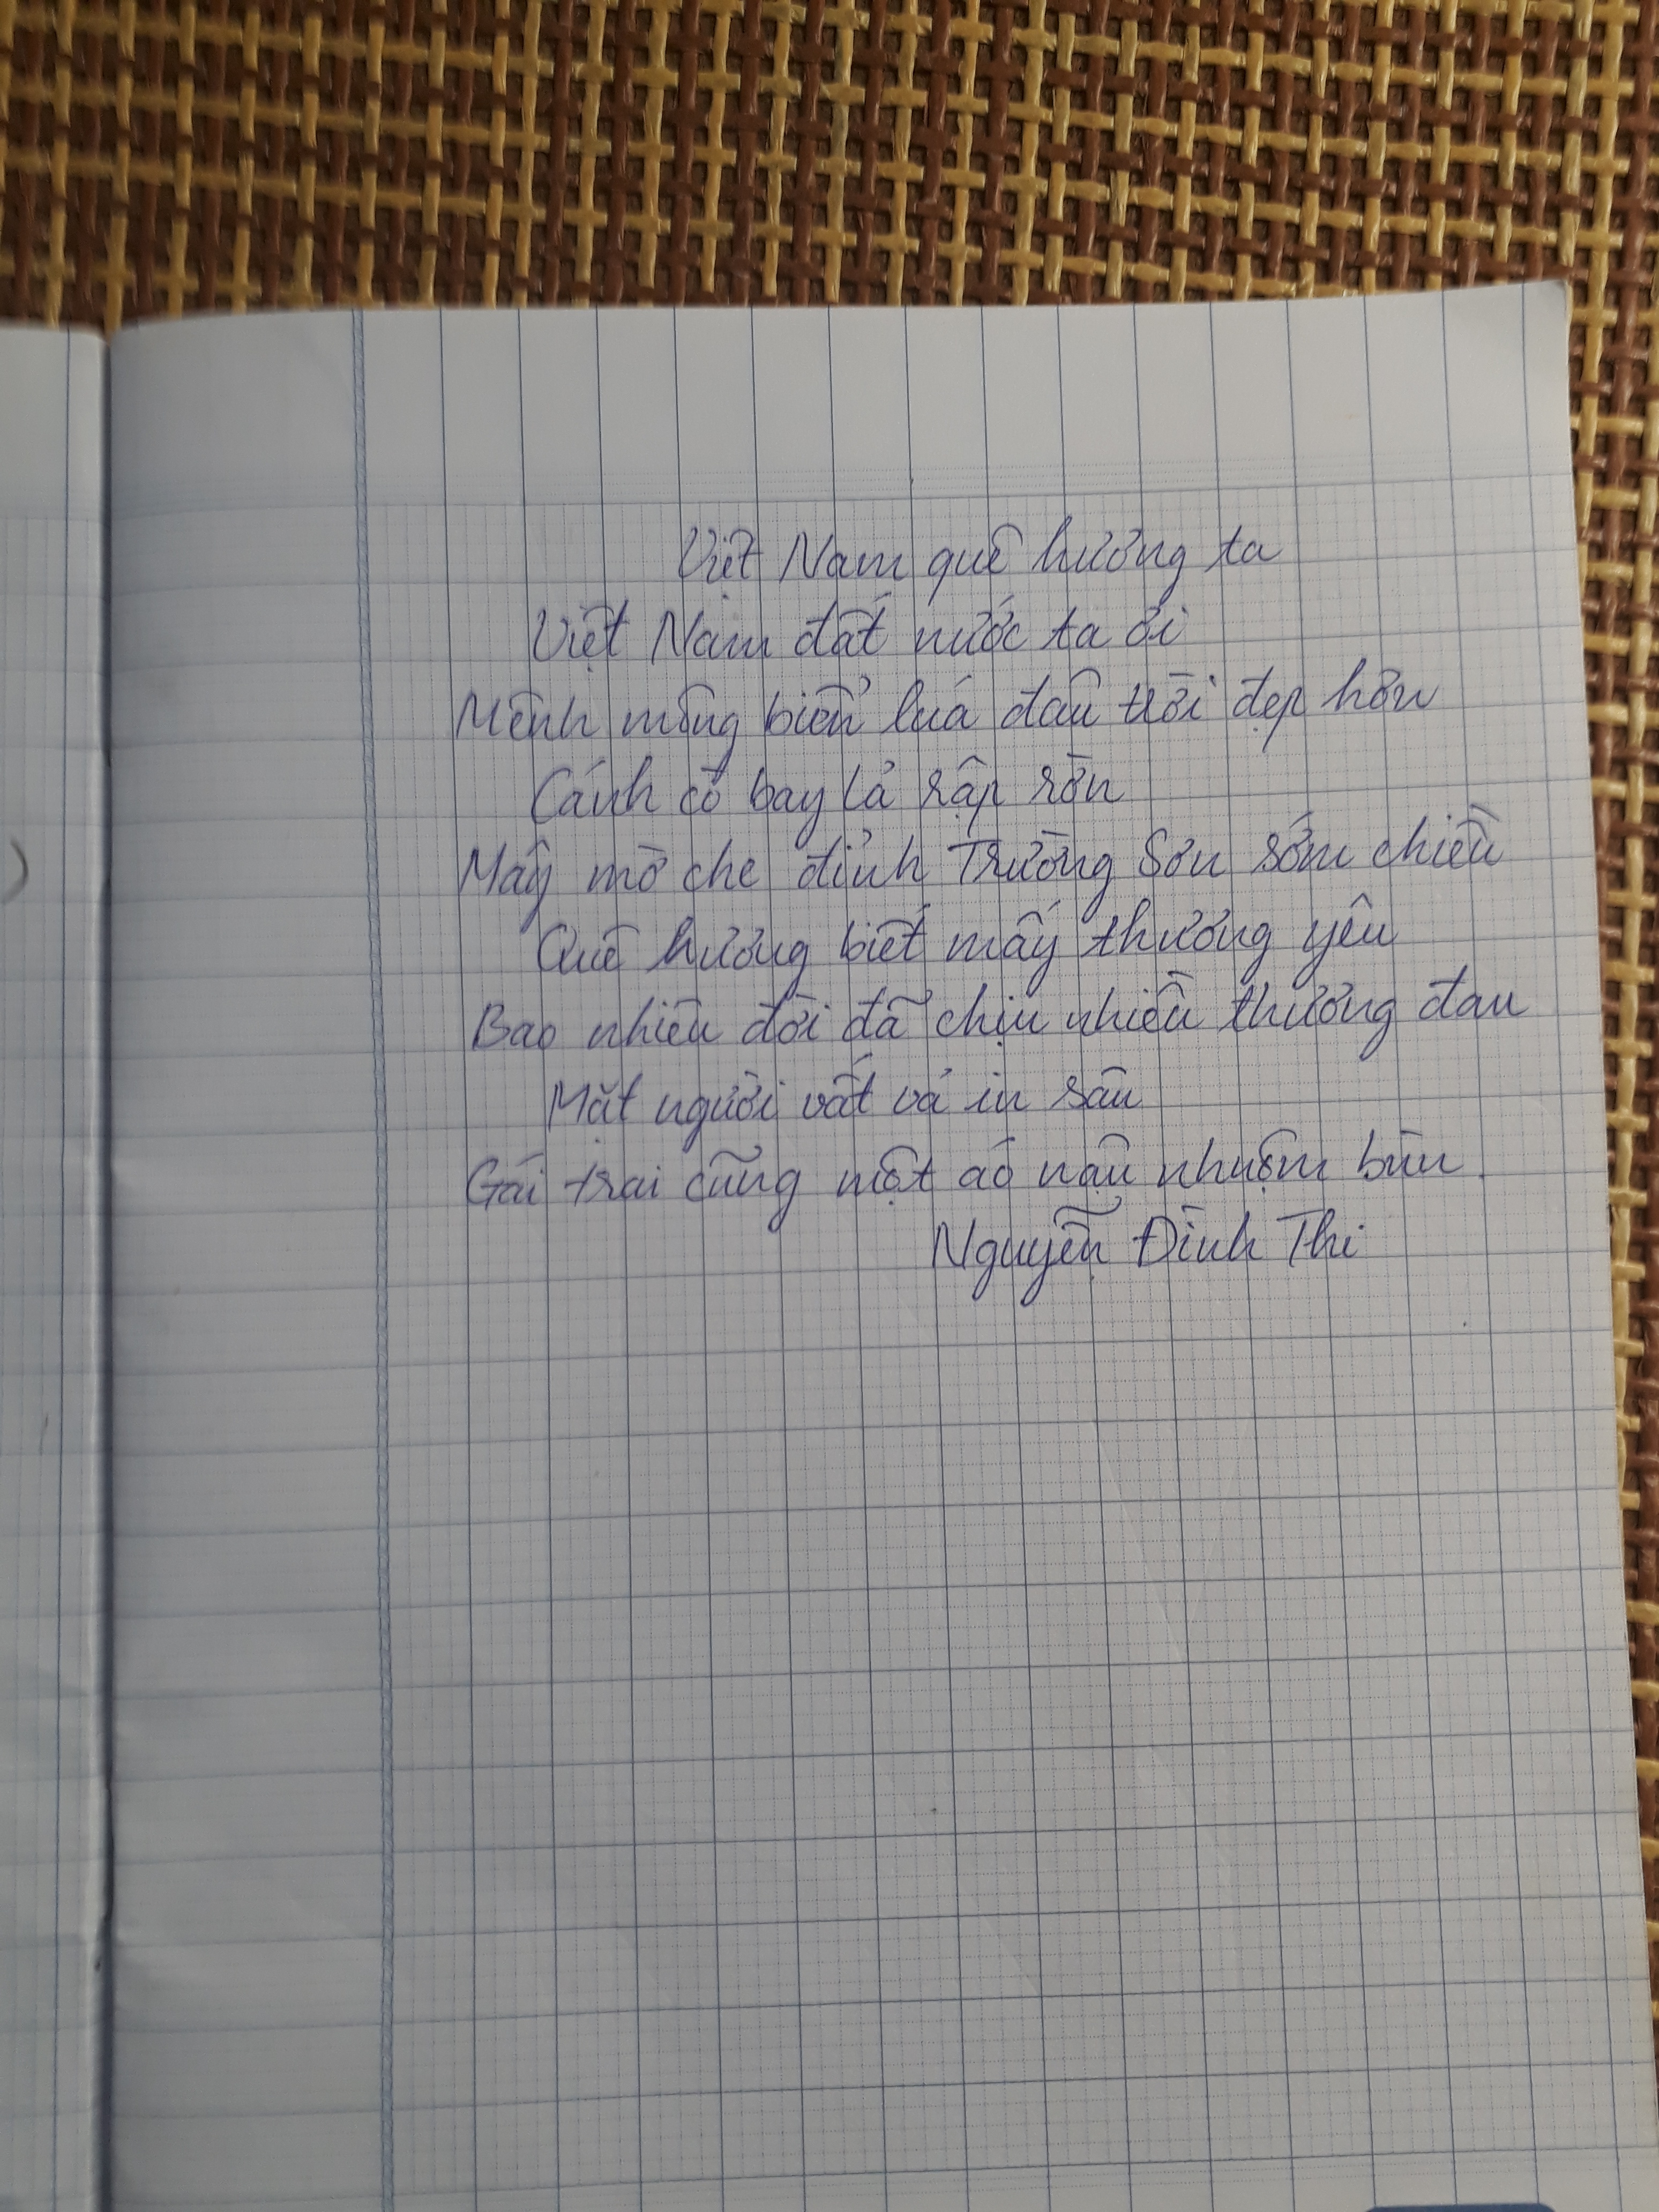 Việt Nam quê hương ta
Việt Nam đất nước ta ơi
Mênh mông biển lúa đâu trời đẹp hơn
Cánh cò bay lả rập rờn
Mây mờ che đỉnh Trường Sơn sớm chiều
Quê hương biết mấy thương yêu
Bao nhiêu đời đã chịu nhiều thương đau
Mặt người vất vả in sâu
Gái trai cũng một áo nâu nhuộm bùn.
Nguyễn Đình Thi